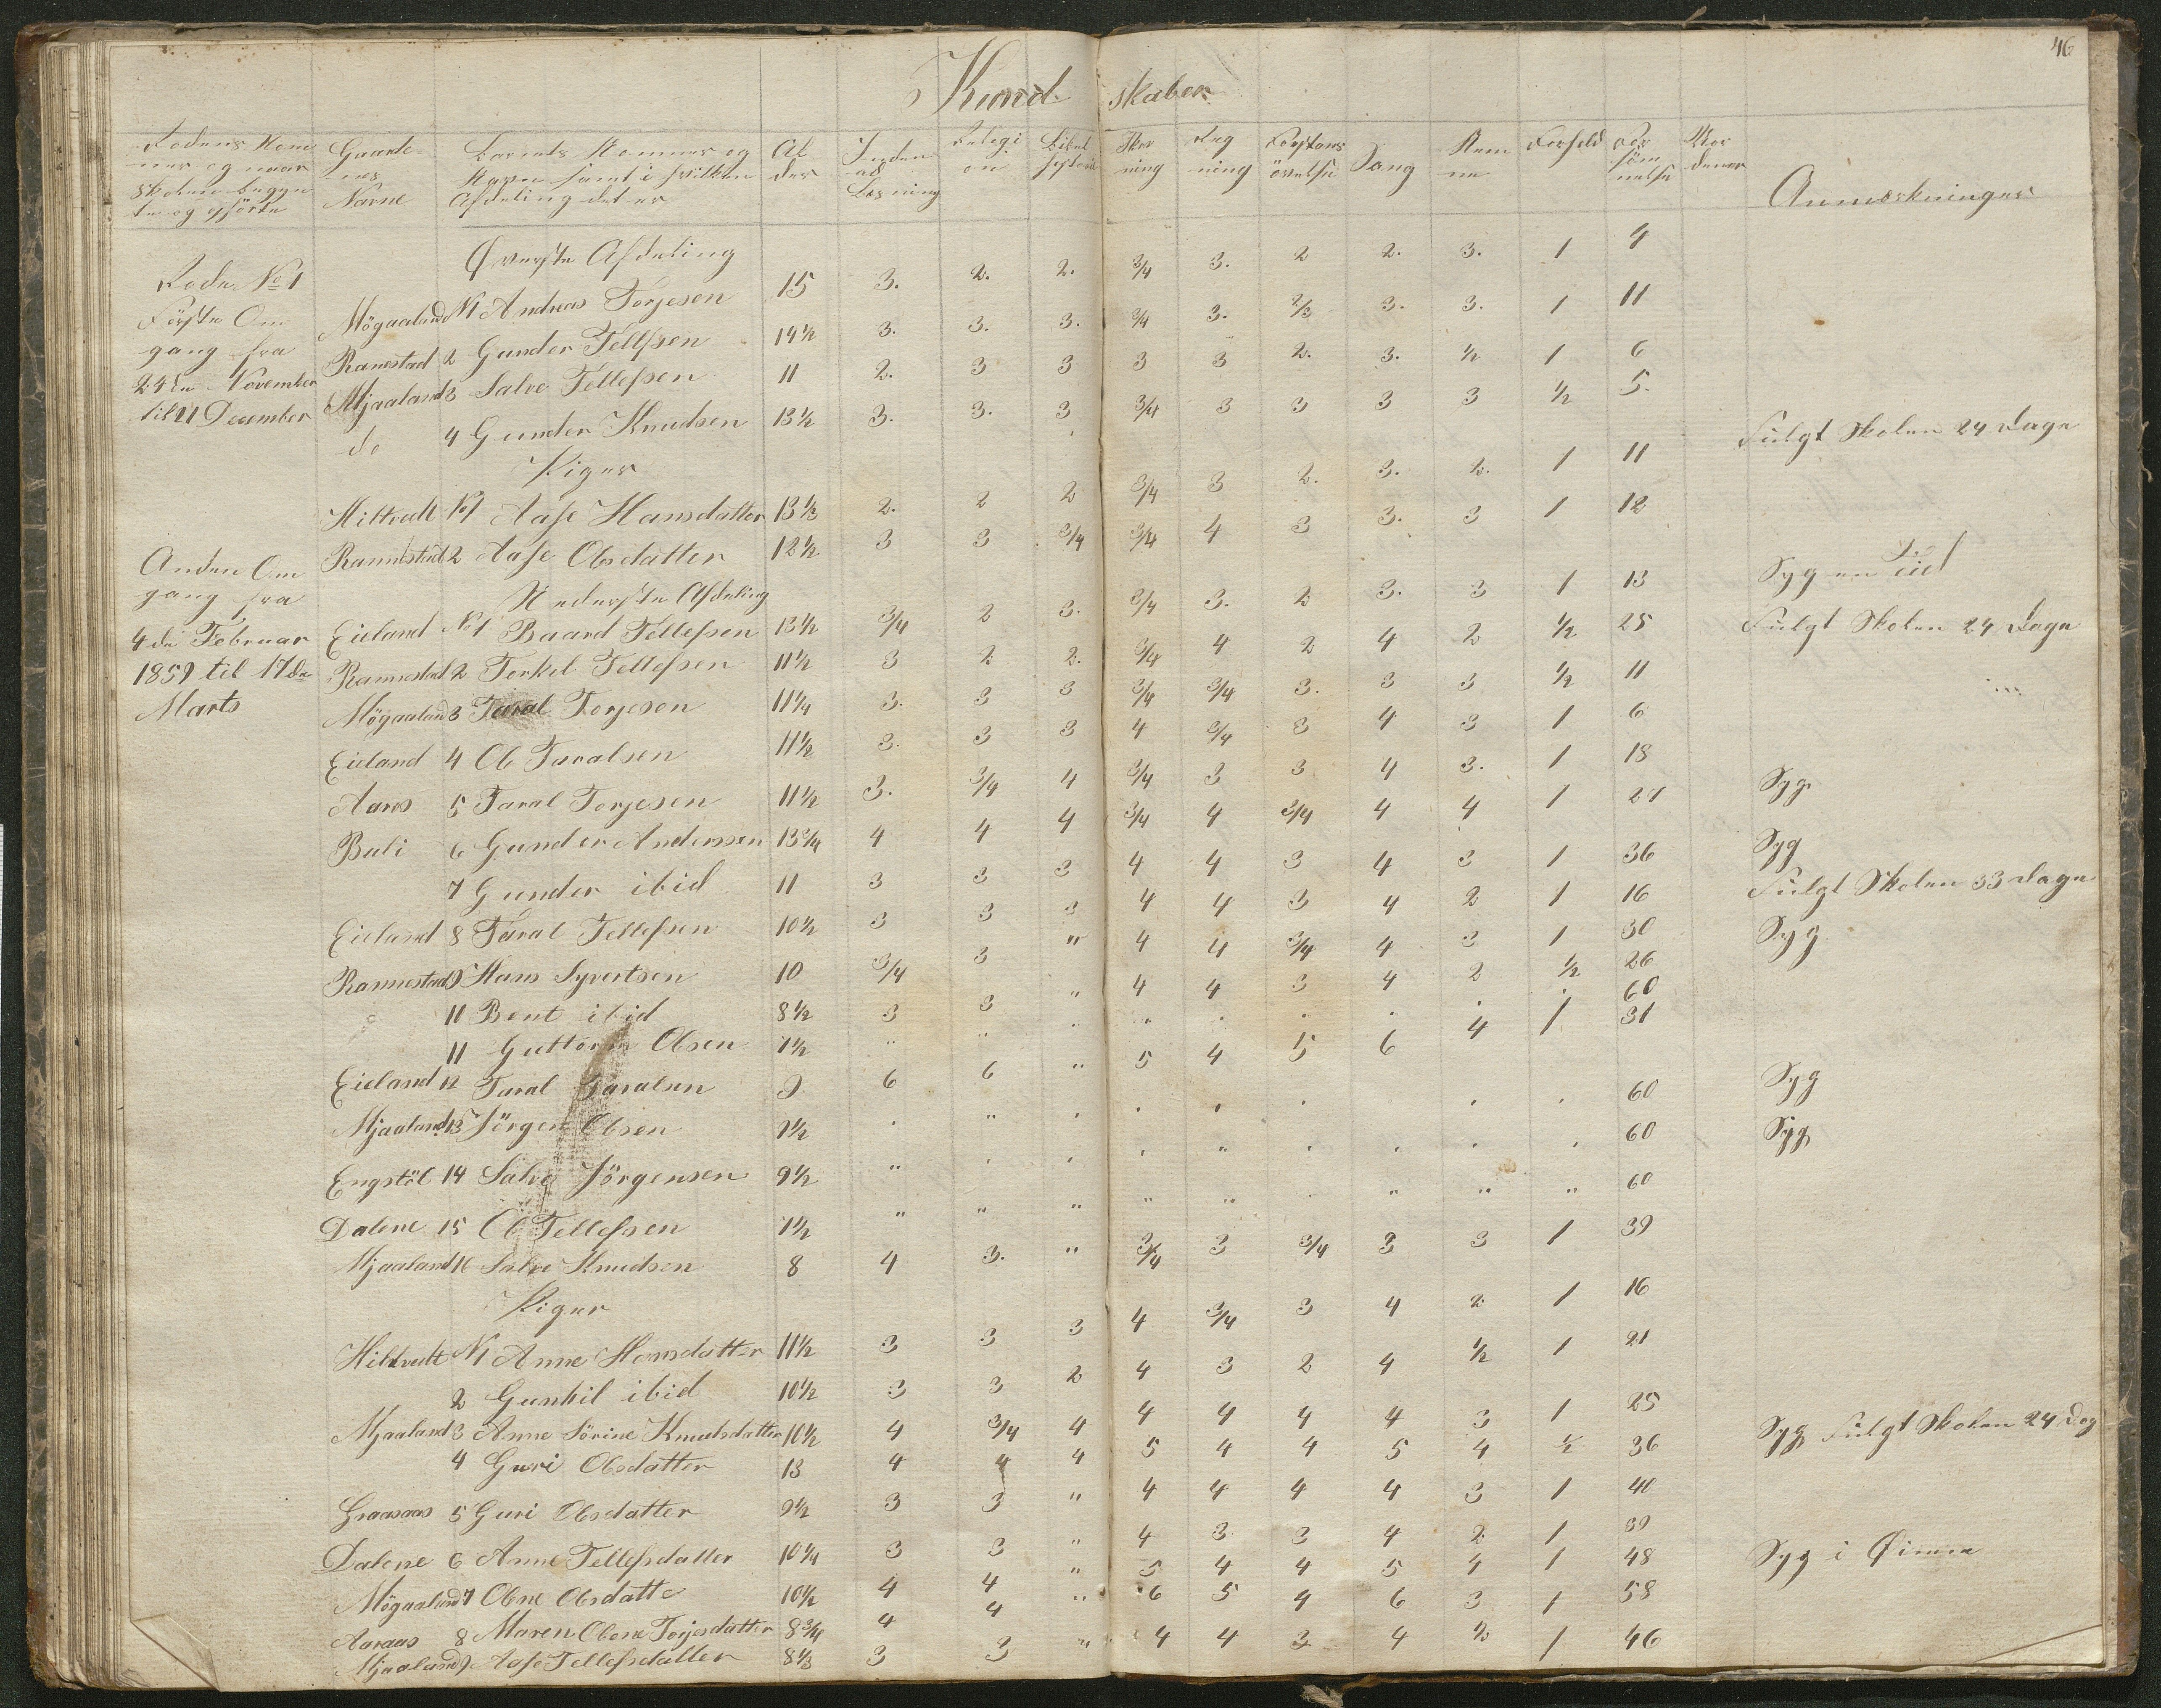 46
Kund skaber
Rodens Nom mer og naar Skolen begyn te og ophörte
Gaarde nes Navne
Barnets Nommer og Navn samt i hvilken Afdeling det er
Al der
Inden ad Læsning
Religi on
Bibel historie
Skriv ning
Reg ning
Forstands övelse
Sang
Nem me
Forhold
For söm melse
Anmærkninger
Øverste Afdeling
Rode No 1
Förste Om
gang fra
24de November
til 21 December
Møgaaland N1 Andreas Torjesen 15 3. 2. 2. 3/4 3. 2 2. 3. 1 4
Ranestad 2 Gunder Tellefsen 14½ 3. 3. 3. 3/4 3. 2/3 3. 3. 1 11
Mjaaland 3 Salve Tellefsen 11 2. 3 3 3 3 2. 3. ½ 1 6
do 4 Gunder Knudsen 13½ 3. 3. 3 3/4 3 3 3 3 ½ 5. Fulgt Skolen 24 Dage
Piger
Hiltvedt No1 Aase Hansdatter 13⅓ 2. 2 2 3/4 3 2. 3. 2. 1 11
Rannestad 2 Aase Olsdatter 12½ 3 3 3/4 3/4 4 3 3. 3 1 12 Syg en Tid
Anden Om
gang fra
4de Februar
1859 til 17de
Marts
Nederste Afdeling
Eieland No1 Baard Tellefsen 13½ 3/4 2 3. 3/4 3. 2 3. 3 1 13
Rannestad 2 Torkel Tellefsen 11½ 3 2 2. 3/4 4 2 4 2 ½ 25 Fulgt Skolen 24 Dage
Møgaaland 3 Taral Torjesen 11¼ 3. 3 3 3/4 3/4 3. 3 3 ½ 11
Eieland 4 Ole Taralsen 11½ 3. 3 3 4 3/4 3 4 3 1 6
Aaros 5 Taral Torjesen 11½ 3. 3/4 4 3/4 3 3 4 3. 1 18 Syg
Buli 6 Gunder Anderssen 13¾ 4 4 4 3/4 4 3/4 4 4 1 27 Syg
7 Gunder ibid 11 3 3 3 4 4 3 4 3 1 36 Fulgt Skolen 33 Dage
Eieland 8 Taral Tellefsen 10½ 3 3 3 4 4 3 4 2 1 16
Rannestad 9 Hans Syvertsen 10 3/4 3 " 4 4 3/4 4 3 1 30 Syg
11 Bent ibid 8½ 3 3 " 4 4 3 4 2 ½ 26
11 Guttorm Olsen 7½ " " . " . . . . . 60
Eieland 12 Taral Taralsen 9 6 6 " 5 4 5 6 4 1 31 Syg
Mjaaland 13 Jörgen Olsen 7½ . " . . . . . . 60 Syg
Engstöl 14 Salve Jörgensen 9½ " . . . " . . . . 60
Dalene 15 Ole Tellefsen 7½ " " " " " . " " " 60
Mjaaland 16 Salve Knudsen 8 4 3. " 3/4 3 3/4 3 3 1 39
Piger
Hiltvedt N1 Anne Hansdatter 11½ 3 3 3 4 3/4 3 4 2 1 16
2 Gunhil ibid 10½ 3 3 2 4 3 2 4 ½ 1 21
Mjaaland 3 Anne Sörine Knudsdatter 10½ 4 3/4 4 4 4 4 4 3 1 25 Syg Fulgt Skolen 24 Dag
4 Guri Olsdatter 13 4 4 4 5 4 4 5 4 ½ 36
Graasaas 5 Guri Olsdatter 9½ 3 3 " 4 4 4 4 3 1 40
Dalene 6 Anne Tellefsdatter 10¼ 3 3 " 4 3 3 4 2 1 39
Møgaaland 7 Olene Olsdatte 10½ 4 4 " 5 4 4 5 4 1 48 Syg i Øinene
Aaraas 8 Maren Olene Torjesdatter 8¾ 4 4 " 6 5 4 6 3 1 58
Mjaaland 9 Aase Tellefsdatter 8⅓ 3 3 " 4 4 3 4 ⅔ 1 46